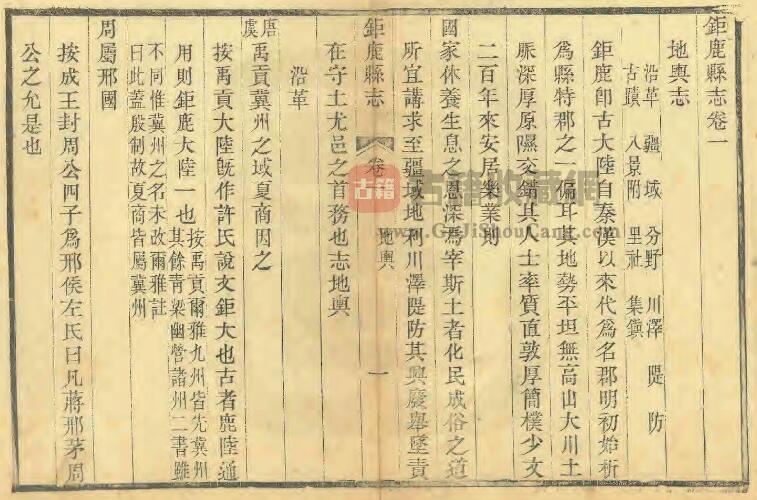 鉅鹿縣志卷一
地輿志
沿革 疆域 分野 川澤 隄防
古蹟 八景附 里社 集鎮
鉅鹿卽古大陸自秦漢以來代爲名郡明初始析
爲縣特郡之一偏耳其地勢平坦無高山大川土
脈深厚原隰交錯其人士率質直敦厚簡樸少文
二百年來安居樂業則
國家休養生息之恩深爲宰斯土者化民成俗之道
所宜講求至疆域地利川澤隄防其興廢舉墜責
在守土尤邑之首務也志地輿
鉅鹿縣志
卷一
地輿
一
沿革
唐虞
禹貢冀州之域夏商因之
按禹貢大陸旣作許氏說文鉅大也古者鹿陸通
用則鉅鹿大陸一也
按禹貢爾雅九州皆先冀州
其餘靑梁幽營諸州二書雖
不同惟冀州之名未改爾雅註
曰此蓋殷制故夏商皆屬冀州
周屬邢國
按成王封周公四子爲邢侯左氏曰凡蔣邢茅周
公之允是也
古籍
古籍收藏網
www.GuJiShouCang.com